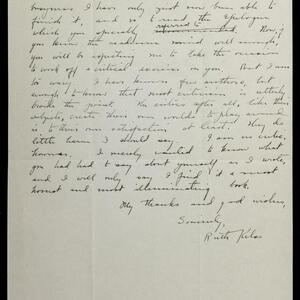 however I have only just now been able to
finish it, and so to read the Epilogue
which you specially referred. Now, if
you know the academic mind well enough,
you will be expecting me to take the occasion
to work off a critical on you. But I am
so wary. I have known few authors, but
enough to know that most criticism is utterly
beside the point. The critics after all, like their
subjects, create their own worlds to play around
in, to their own satisfaction at least. They do
little harm I should say. I am no critic,
however. I merely wanted to know what
you had to say about yourself as I wrote,
and I will only say I find it a most
honest and most illuminating book.
My thanks and good wishes,
Sincerely,
Ruth